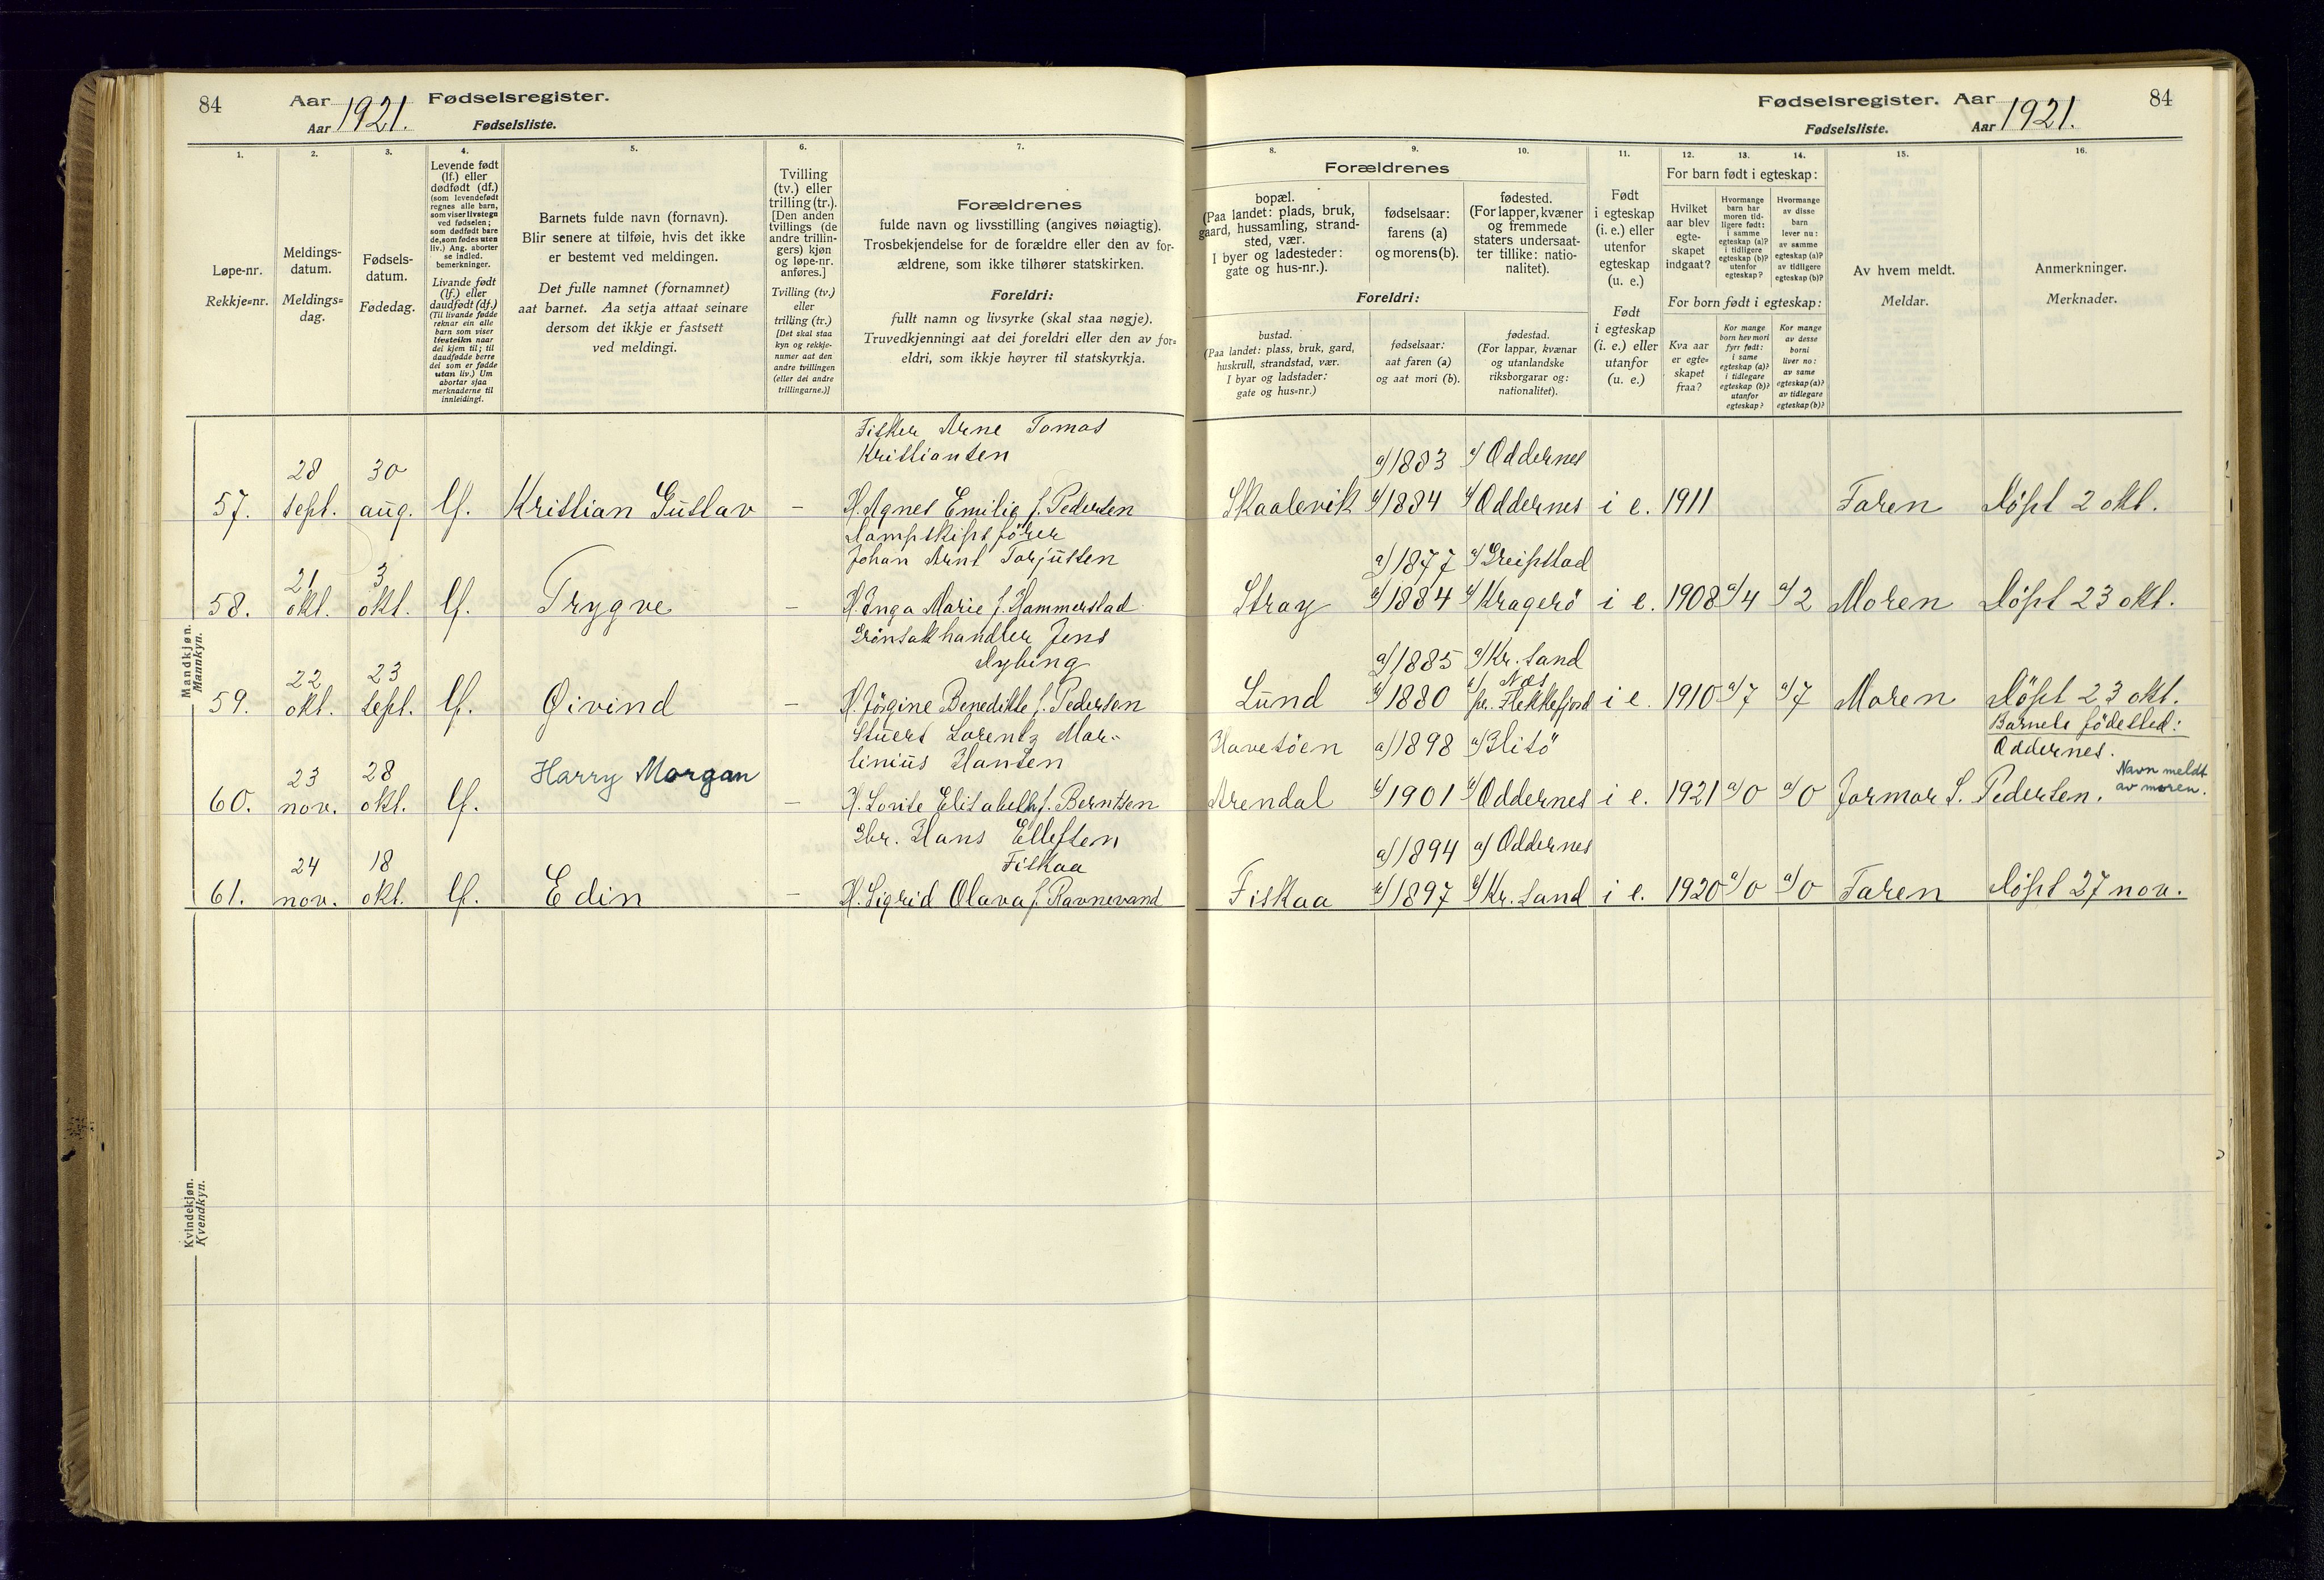 84
Aar 1921. Fødselsregister.
Aar Fødselsliste.
Fødselsregister. Aar 1921.
Fødselsliste. Aar
84
1.
Løpe-nr.
Rekkje=nr.
2.
Meldings-
datum.
Meldings=
dag.
3.
Fødsels-
datum.
Fødedag.
4.
Levende født
(lf.) eller
dødfødt (df.)
(som levendefødt
regnes alle barn,
som viser livstegn
ved fødselen;
som dødfødt bare
de, som fødes uten
liv.) Ang. aborter
se indled.
bemerkninger.
Livande født
(lf.) eller
daudfødt (df.)
(Til livande fødde
reknar ein alle
barn som viser
livsteikn naar
dei kjem til; til
daudfødde berre
dei som er fødde
utan liv.) Um
abortar sjaa
merknaderne til
innleidingi.
5.
Barnets fulde navn (fornavn).
Blir senere at tilføie, hvis det ikke
er bestemt ved meldingen.
Det fulle namnet (fornamnet)
aat barnet. Aa setja attaat seinare
dersom det ikkje er fastsett
ved meldingi.
6.
Tvilling
(tv.) eller
trilling (tr.).
[Den anden
tvillings (de
andre trillin-
gers) kjøn
og løpe-nr.
anføres.]
Tvilling (tv.)
eller
trilling (tr.)
[Det skal staa
kyn og rekkje-
numer aat den
andre tvillingen
(eller dei andre
trillingarne.)]
7.
Forældrenes
fulde navn og livsstilling (angives nøiagtig).
Trosbekjendelse for de forældre eller den av for-
ældrene, som ikke tilhører statskirken.
Foreldri:
fullt namn og livsyrke (skal staa nøgje).
Truvedkjenningi aat dei foreldri eller den av for=
eldri, som ikkje høyrer til statskyrkja.
Forældrenes
8.
bopæl.
(Paa landet: plads, bruk,
gaard, hussamling, strand-
sted, vær.
I byer og ladesteder:
gate og hus-nr.).
9.
fødselsaar:
farens (a)
og morens (b).
10.
fødested.
(For lapper, kvæner
og fremmede
staters undersaat-
ter tillike: natio-
nalitet).
Foreldri:
bustad.
(Paa landet: plass, bruk, gard,
huskrull, strandstad, vær.
I byar og ladstader:
gate og hus=nr.)
fødselsaar:
aat faren (a)
og aat mori (b).
fødestad.
(For lappar, kvænar
og utanlandske
riksborgarar og:
nationalitet).
11.
Født
i egteskap
(i. e.) eller
utenfor
egteskap
(u. e.)
Født
i egteskap
(i. e.) eller
utanfor
(u. e.)
12. 13. 14.
For barn født i egteskap:
Hvilket
aar blev
egte-
skapet
indgaat?
Hvormange
barn har
moren tid-
ligere født:
i samme
egteskap (a)?
i tidligere
egteskap (b)?
utenfor
egteskap?
Hvormange
av disse
barn
lever nu:
av samme
egteskap (a)?
av tidligere
egteskap (b)?
For born født i egteskap:
Kva aar
er egte-
skapet
fraa?
Kor mange
born hev mori
fyrr født:
i same
egteskap (a)?
i tidlegare
egteskap (b)?
utanfor
egteskap?
Kor mange
av desse
borni
liver no:
av same
egteskap (a)?
av tidlegare
egteskap (b)?
15.
Av hvem meldt.
Meldar.
16.
Anmerkninger.
Merknader.
Mandkjøn.
Mannkyn.
Fisker Arne Tomas
Kristiansen
28 30 a) 1883 a) Oddernes
57. sept. aug. lf. Kristian Gustav — H. Agnes Emilie f. Pedersen Skaalevik b) 1884 b) Oddernes i e. 1911 Faren Döpt 2 okt.
Dampskipsförer
Johan Arnt Torjusen
21 3 a) 1877 a) Greipstad
58. okt. okt. lf. Trygve — H. Inga Marie f. Hammerstad Stray b) 1884 b) Kragerö i e. 1908 a) 4 a) 2 Moren Döpt 23 okt.
Grönsakhandler Jens
Nybing
22 23 a) 1885 a) Kr.sand
59. okt. sept. lf. Øivind — H. Jörgine Benedikte f. Pedersen Lund b) 1880 b) Næs pr. Flekkefjord i e. 1910 a) 7 a) 7 Moren Döpt 23 okt.
Stuert Lorentz Mar-
tinius Hansen
Havesöen a) 1898 a) Hitö
Barnets födested:
Oddernes.
23 28 Harry Morgan
Navn meldt
av moren.
60. nov. okt. lf. — H. Lovise Elisabeth f. Berntsen Arendal b) 1901 b) Oddernes i e. 1921 a) 0 a) 0 Jormor S. Pedersen.
Gbr. Hans Ellefsen
Fiskaa
24 18 a) 1894 a) Oddernes
61. nov. okt. lf. Edin — H. Sigrid Olava f. Ravnevand Fiskaa b) 1897 b) Kr.sand i e. 1920 a) 0 a) 0 Faren Döpt 27 nov.
Kvindekjøn.
Kvendkyn.